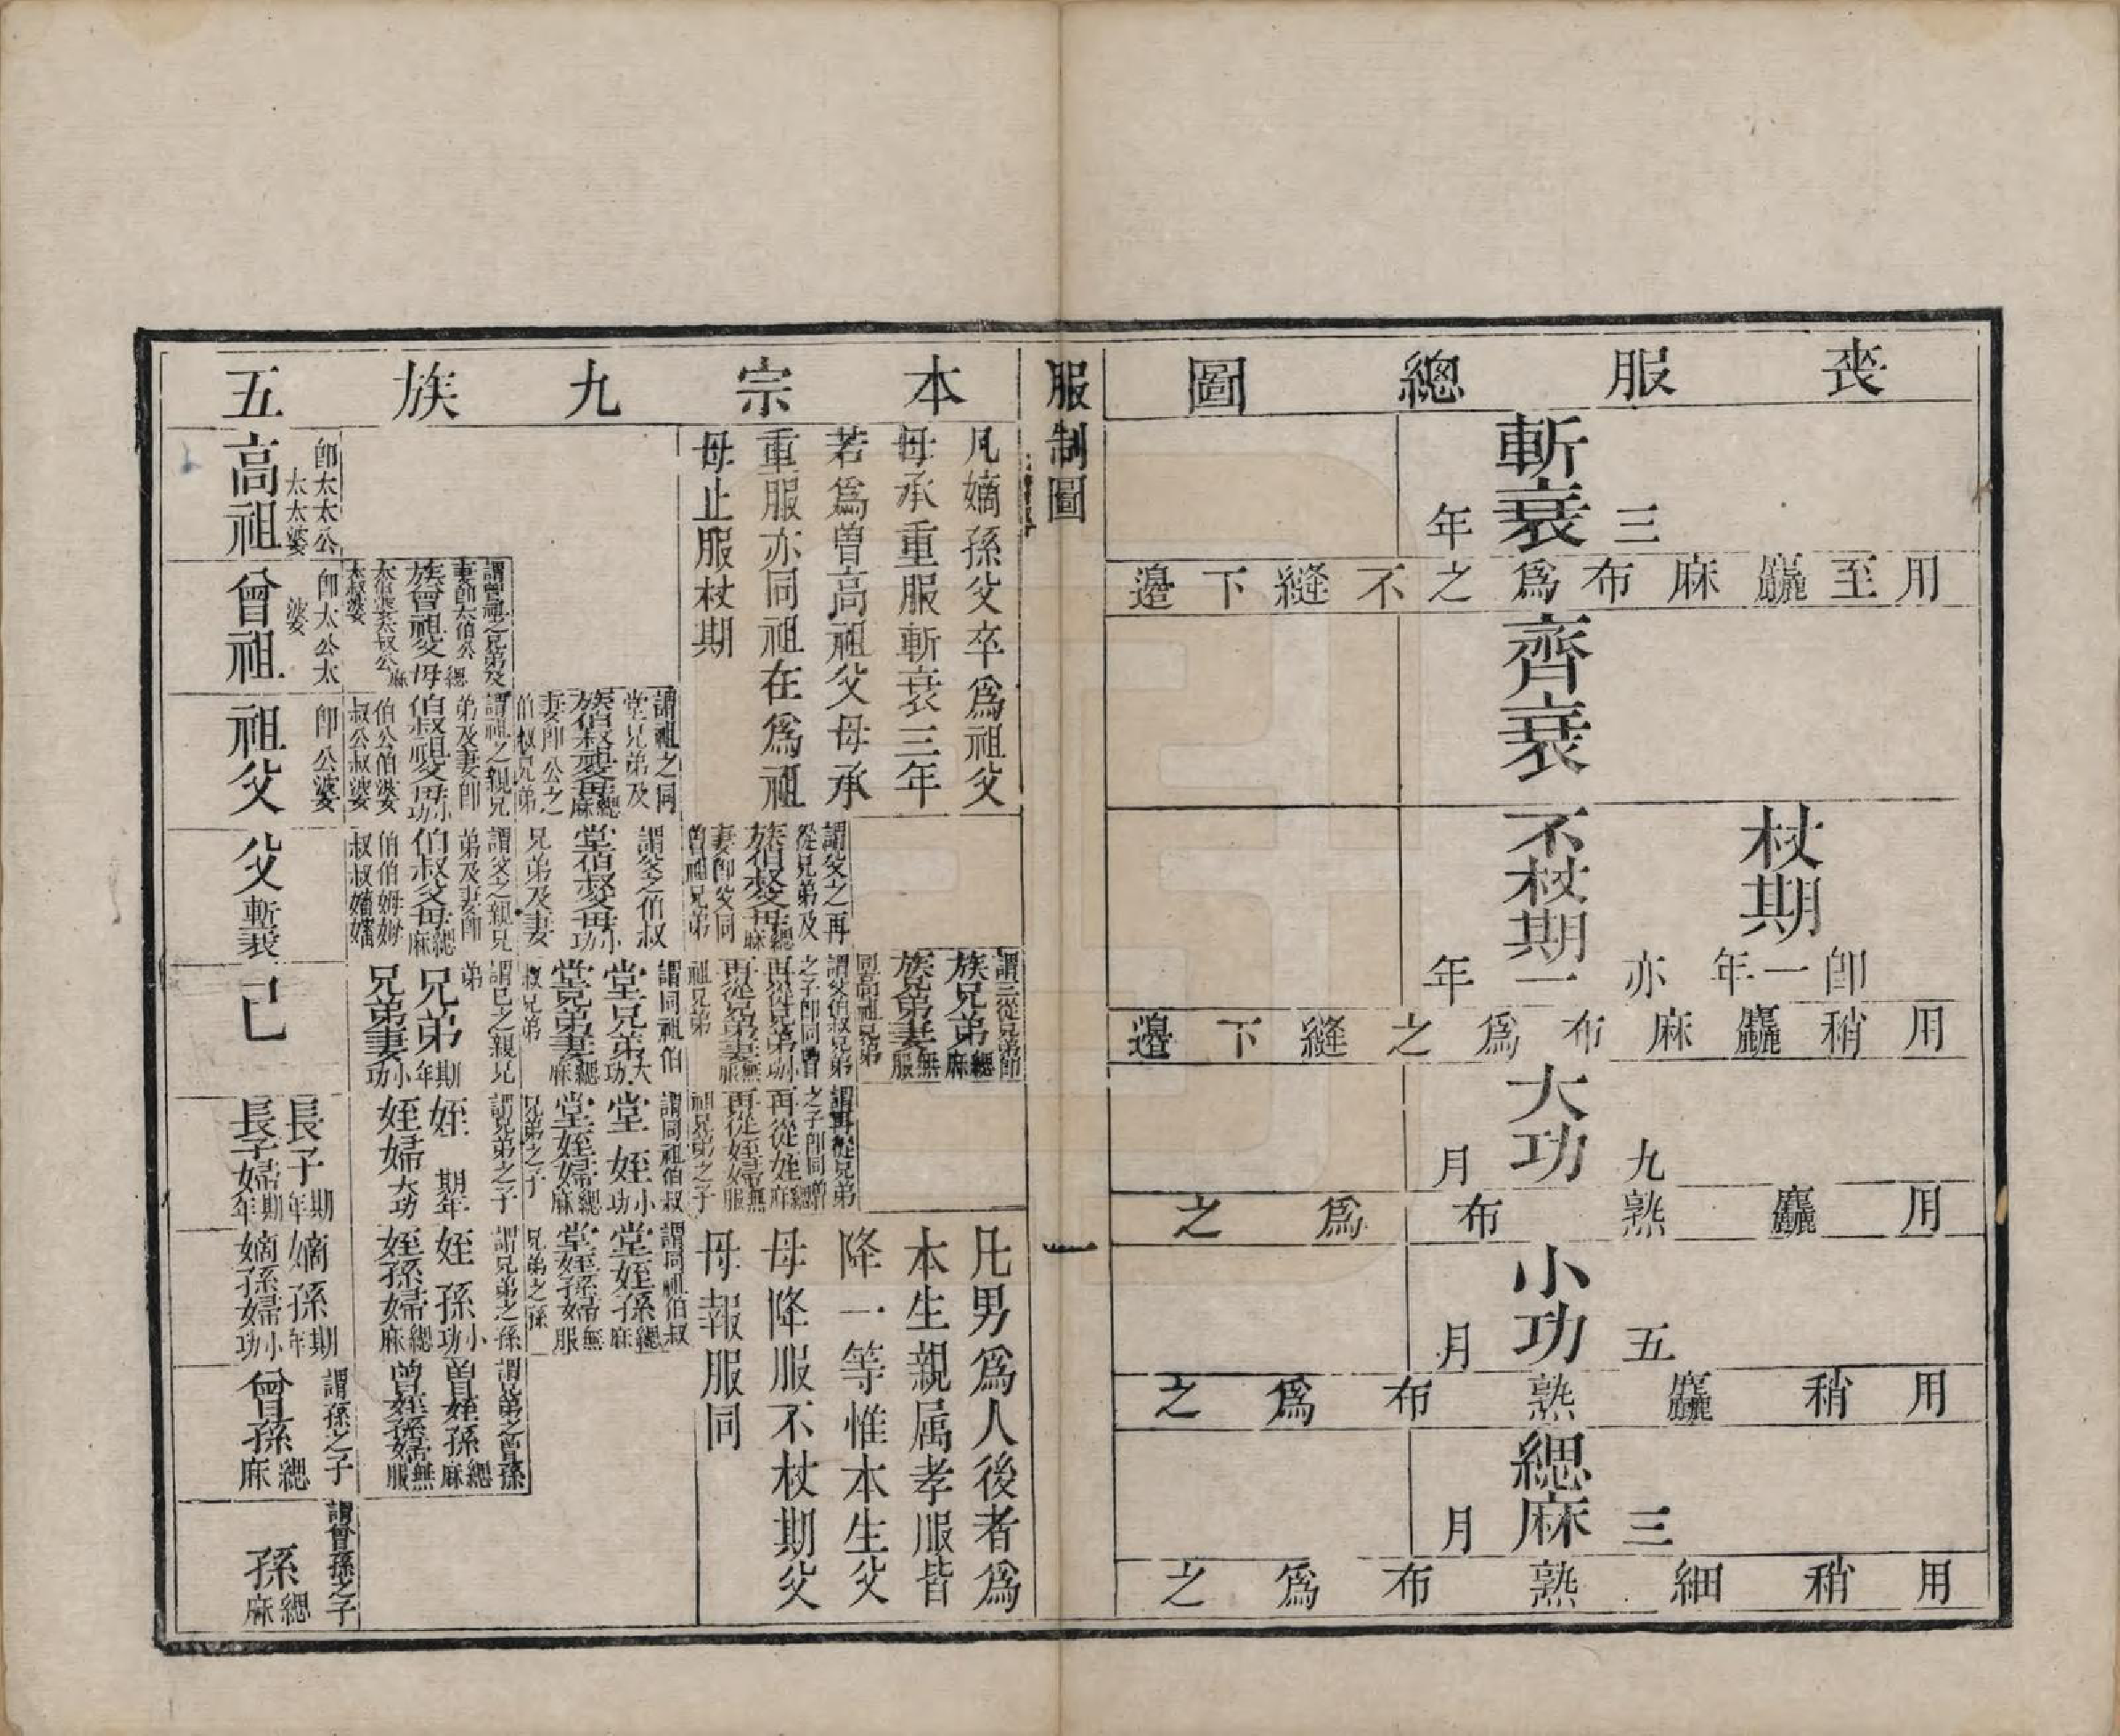 喪服總圖
斬衰
三年
用至麤麻布爲之不縫下邊
齊衰
杖期
即一年
不杖期
亦一年
用稍麤麻布爲之縫下邊
大功
九月
用麤熟布爲之
小功
五月
用稍麤熟布爲之
緦麻
三月
用稍細熟布爲之
服制圖
一
本宗九族五
凡嫡孫父卒爲祖父
母承重服斬衰三年
若爲曾高祖父母承
重服亦同祖在爲祖
母止服杖期
即太太公
太太婆
高祖
謂曾祖之兄弟及
妻即太伯公
族曾祖父母緦麻
太伯婆太叔公
太叔婆
即太公太
婆
曾祖
謂祖之同
堂兄弟及
族伯叔祖父母緦麻
妻即公之
伯叔兄弟
謂祖之親兄
弟及妻即
伯叔祖父母小功
伯公伯婆
叔公叔婆
即公婆
祖父
謂父之再
從兄弟及
族伯叔父母緦麻
妻即父同
曾祖兄弟
謂父之伯叔
堂伯叔父母小功
兄弟及妻
謂父之親兄
弟及妻即
伯叔父母緦麻
伯伯姆姆
叔叔嬸嬸
父斬衰
謂三從兄弟即
族兄弟緦麻
族兄弟妻無服
同高祖兄弟
謂父伯叔兄弟
之子即同曾
再從兄弟小功
再從兄弟妻無服
祖兄弟
謂同祖伯
堂兄弟大功
堂兄弟妻緦麻
叔兄弟
謂己之親兄
弟
兄弟期年
兄弟妻小功
己
謂再從兄弟
之子即同曾
再從姪緦麻
再從姪婦無服
祖兄弟之子
謂同祖伯叔
堂姪小功
堂姪婦緦麻
兄弟之子
謂兄弟之子
姪期年
姪婦大功
長子期年
長子婦期年
謂同祖伯叔
堂姪孫緦麻
堂姪孫婦無服
兄弟之孫
謂兄弟之孫
姪孫小功
姪孫婦緦麻
嫡孫期年
嫡孫婦小功
謂兄弟之曾孫
曾姪孫緦麻
曾姪孫婦無服
謂孫之子
曾孫緦麻
謂曾孫之子
孫緦麻
凡男爲人後者爲
本生親属孝服皆
降一等惟本生父
母降服不杖期父
母報服同